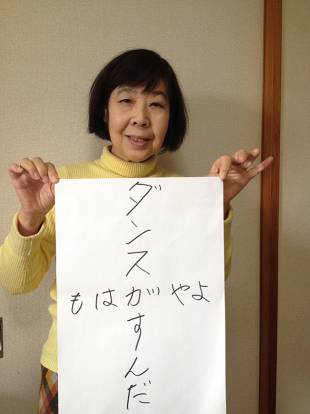 ダンスがすんだ
もはがやよ